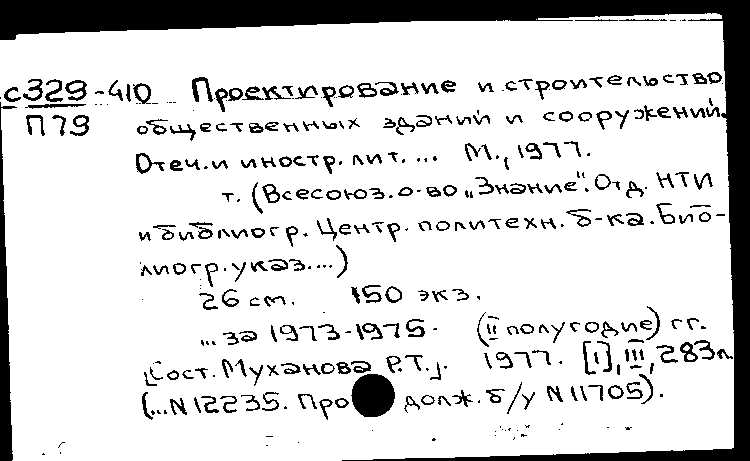 с329-410 Проектирование и строительство
П79 общественных зданий и сооружений.
Отеч. и иностр. лит. ... М., 1977.
т. (Всесоюз. о-во „Знание". Отд. НТИ
и библиогр. Центр. политехн. б-ка. Биб-
лиогр. указ. ...)
26 см. 150 экз.
... за 1973-1975. (II полугодие) гг.
[Сост. Муханова Р.Т.]. 1977. [1], III, 283 л.
(... N 12235. Продолж. б/у N 11705).